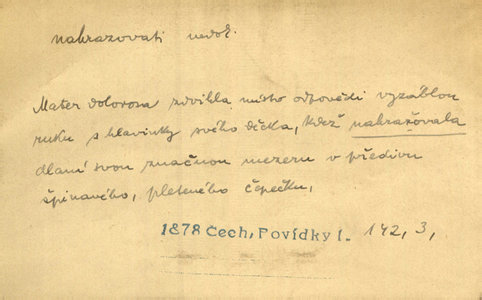 nahrazovati nedok.
Mater dolorosa zdvihla místo odpovědi vyzáblou
ruku s hlavinky svého děcka, kdež nahražovala
dlaní svou značnou mezeru v předivu
špinavého, pleteného čepečku,
1878 Čech, Povídky I. 142, 3,